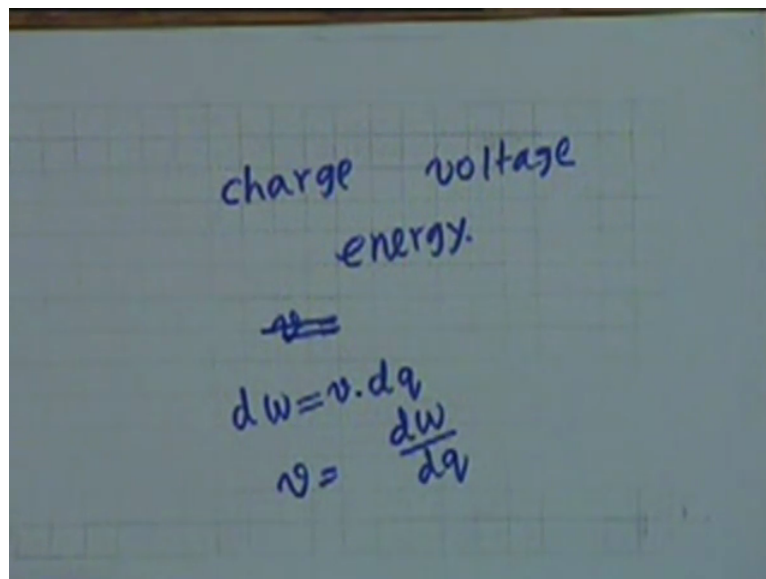 charge voltage
energy.
v=
dw=v.dq
v= dw/dq